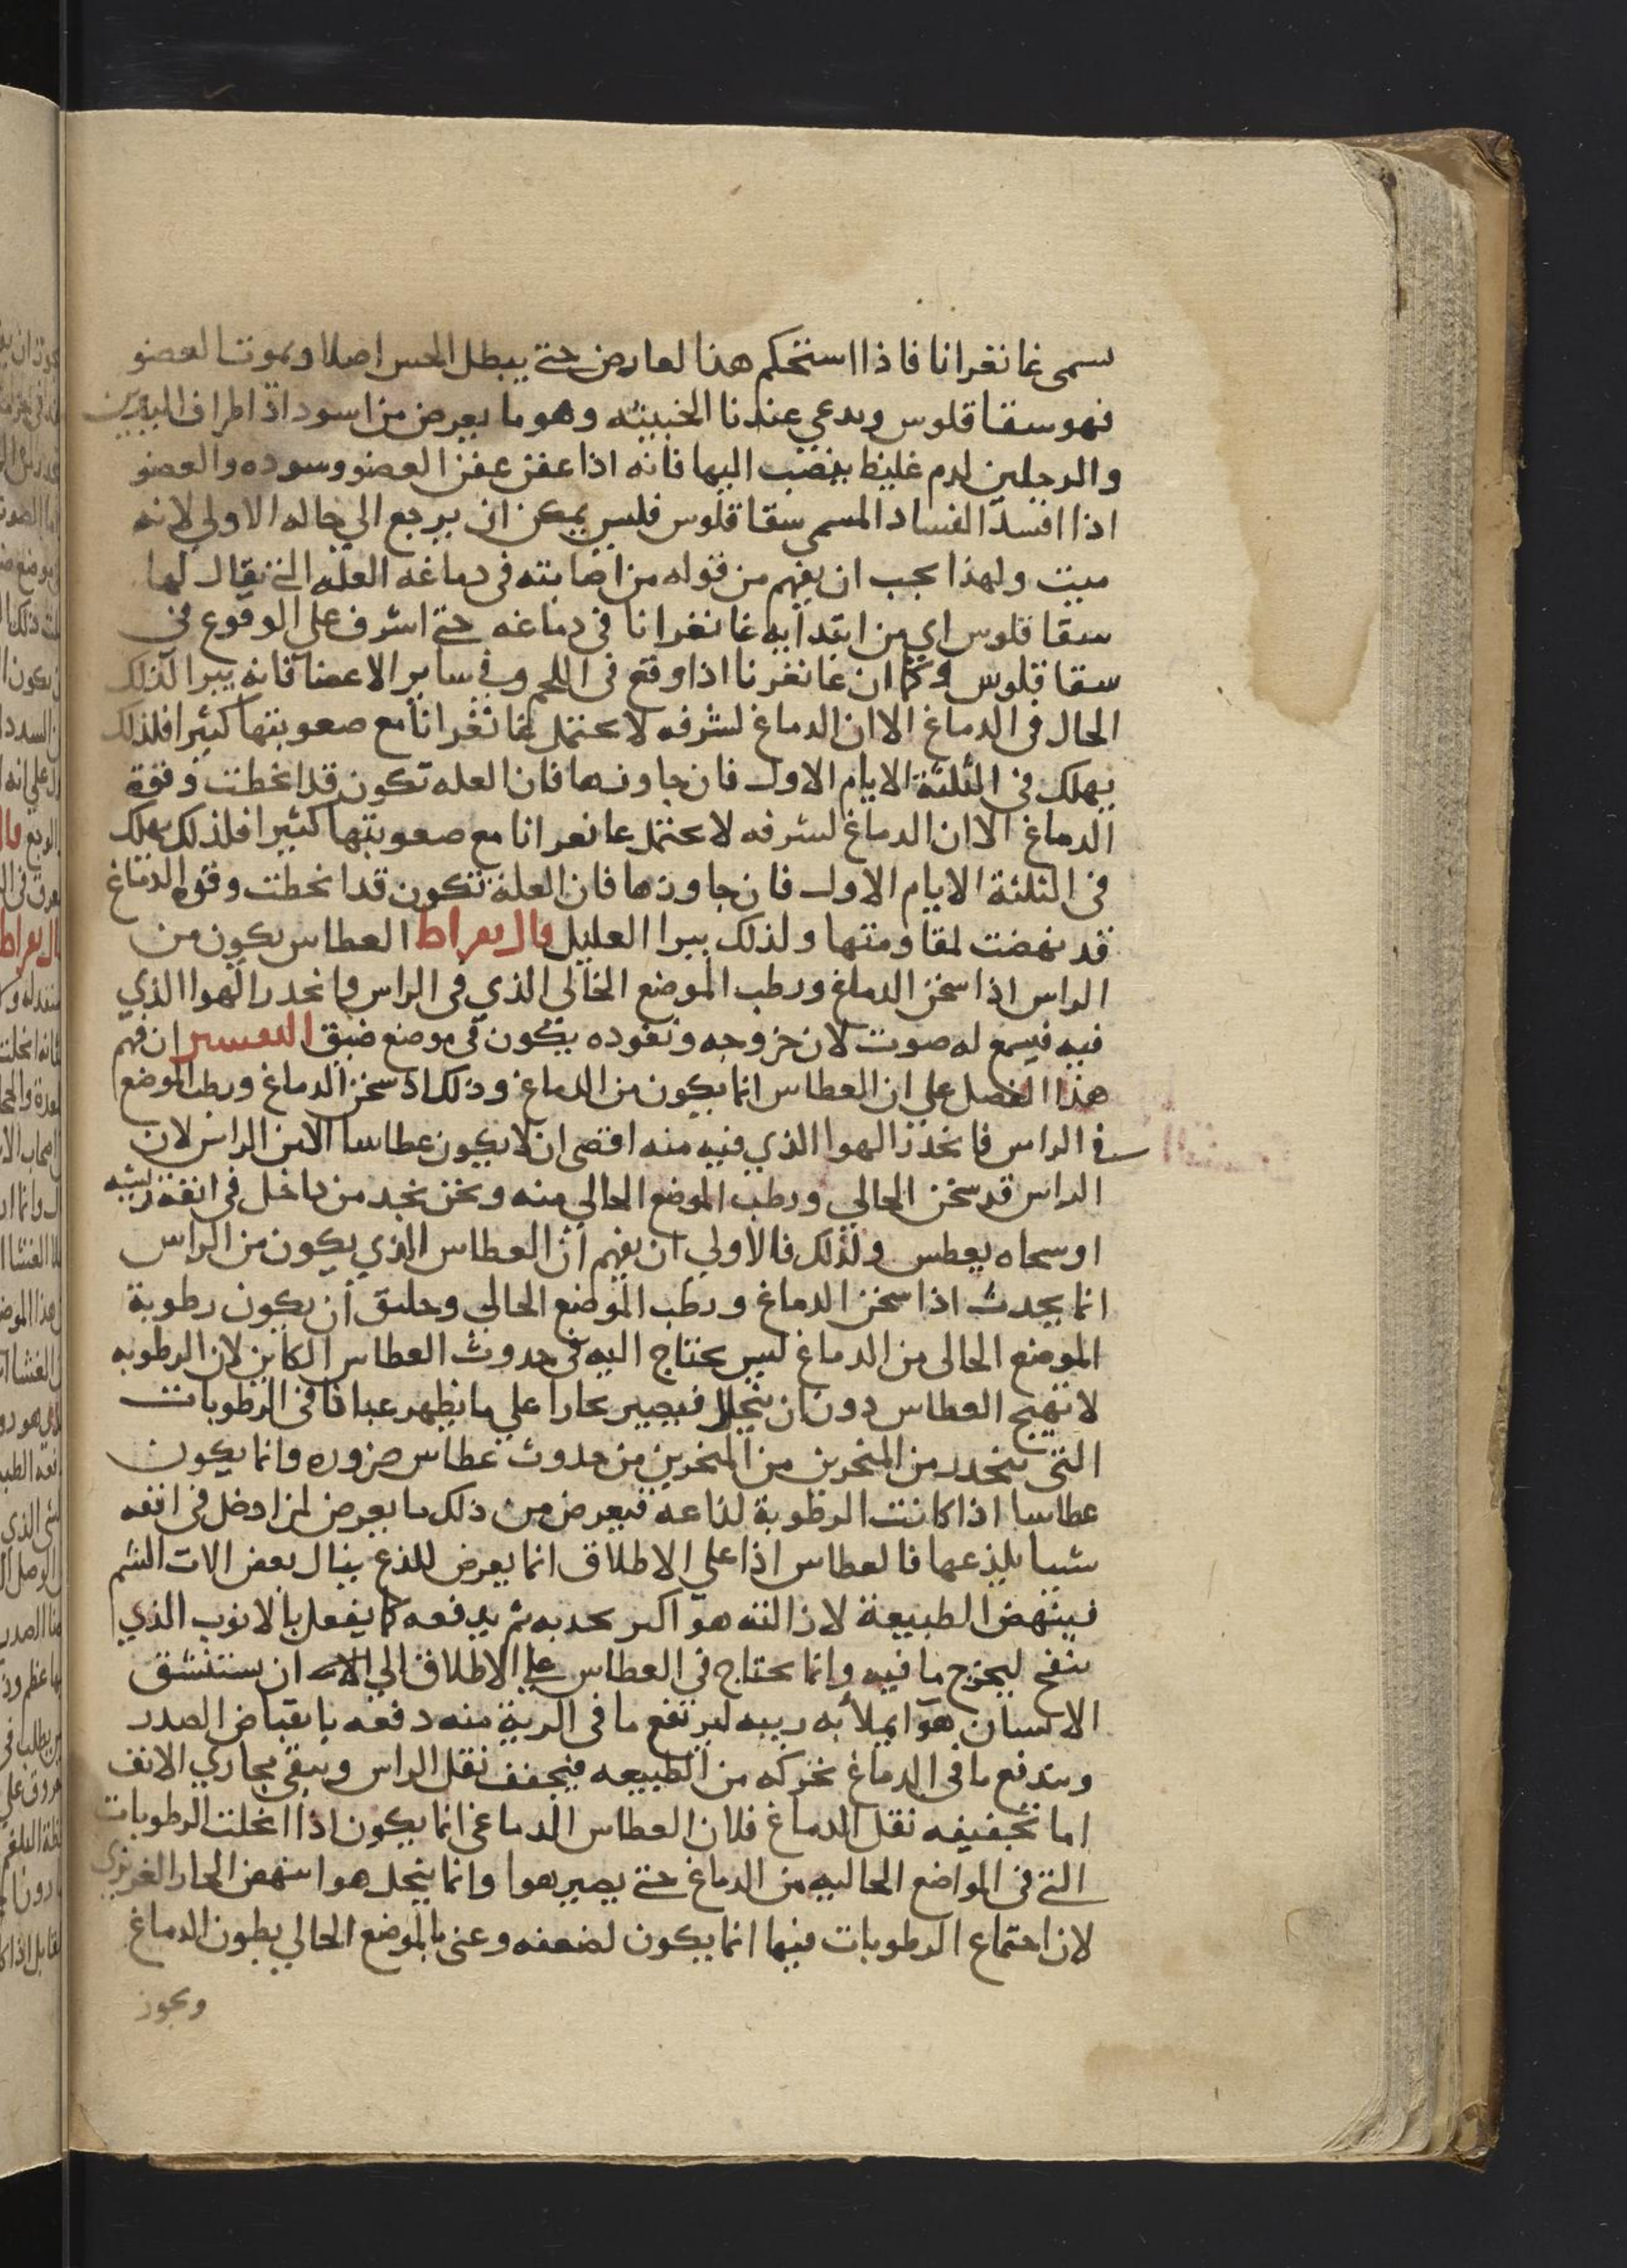 سمى غانغرانا فاذا استحكم هذا العارض حتى يبطل الحس اصلا ويموت العضو
فهو سقاقلوس ويدعي عندنا الخبيثه وهو ما يعرض من اسوداد اطراف اليدين
والرجلين لدم غليظ ينصب اليها فانه اذا عفن عفن العضو وسوده والعضو
اذا افسد الفساد المسمى سقاقلوس فليس يمكن ان يرجع الي حاله الاولي لانه
ميت ولهذا يجب ان يفهم من قوله من اصابته في دماغه العله التي يقال لها
سقاقلوس اي من ابتدا به غانغرانا في دماغه حتى اشرف على الوقوع في
سقاقلوس وكما ان غانغرنا اذا وقع في اللحم وفي ساير الاعضا فانه يبرا كذلك
الحال في الدماغ الا ان الدماغ لشرفه لا يحتمل غانغرانا مع صعوبتها كثيرا فلذلك
يهلك في الثلثة الايام الاول فان جاوزها فان العله تكون قد انحطت وقوة
الدماغ الا ان الدماغ لشرفه لا يحتمل غانغرانا مع صعوبتها كثيرا فلذلك يهلك
في الثلثة الايام الاول فان جاوزها فان العلة تكون قد انحطت وقوه الدماغ
قد نهضت لمقاومتها ولذلك يبرا العليل قال بقراط العطاس يكون من
الراس اذا سخن الدماغ ورطب الموضع الخالي الذي في الراس وانحدر الهوا الذي
فيه فيسمع له صوت لان خروجه ونفوده يكون في موضع ضيق التفسير ان فهم
هذا الفصل علي ان العطاس انما يكون من الدماغ وذلك اذ سخن الدماغ ورطب الموضع
في الراس فانحدر الهوا الذي فيه منه اقتضى ان لا يكون عطاسا الا من الراس لان
الراس قد سخن الخالي ورطب الموضع الخالي منه ونحن نجد من داخل في انفه ريشه
او سحاه يعطس ولذلك فالاولي ان يفهم ان العطاس الذي يكون من الراس
انما يحدث اذا سخن الدماغ ورطب الموضع الخالي وخليق ان يكون رطوبة
الموضع الخالي من الدماغ ليس يحتاج اليه في حدوث العطاس الكاين لان الرطوبه
لا تهيج العطاس دون ان تتحلل فيصير بخارا علي ما يظهر عيانا في الرطوبات
التي تنحدر من المنخرين من المنخرين من حدوث عطاس ضروره وانما يكون
عطاسا اذا كانت الرطوبة لذاعه فيعرض من ذلك ما يعرض لمن ادخل في انفه
شيا يلذعها فالعطاس اذا علي الاطلاق انما يعرض للذع ينال بعض الات الشم
فينهض الطبيعة هوا اكبر يجذبه ثم يدفعه كما يفعل بالانوب الذي
ينفخ ليخرج ما فيه وانما يحتاج في العطاس علي الاطلاق الي ان يستنشق
الانسان هوا يملأ به رييه ليرتفع ما في الرية منه دفعه بانقباض الصدر
ويندفع ما في الدماغ بحركه من الطبيعه فيخفف ثقل الراس وينقي مجاري الانف
اما تخفيفه ثقل الدماغ فلان العطاس الدماغي انما يكون اذا انحلت الرطوبات
التي في المواضع الخاليه من الدماغ حتى يصير هوا وانما ينحل هوا بنهض الحار الغريزي
لان اجتماع الرطوبات فيها انما يكون لضعفه وعنى بالموضع الخالي بطون الدماغ
ويجوز